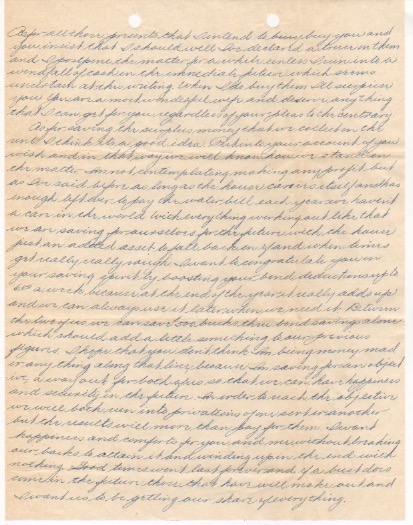 As for all those presents that I intend to business buy you and
you insist that I should, well I've declared a lower in them
and I postpone the matter for a while unless I run into a
windfall of cash in the immediate future which seems
at this writing. When I do buy them I'll surprise
you. You are a most wonderful wife and deserve anything
that I can get for you regardless of your pleas to the contrary.
As for saving the surplus money that we collect on the
rent I think it's a good idea. Put into your account if you
wish and in that way we will know how we stand on
the matter. I'm not contemplating making any profit but
as I've said before as long as the house carries itself and has
enough left over to pay the water bill each year we haven't
a care in the world. With everything working out like that
we are saving for ourselves for the future with the house
just an added asset to fall back on if and when times
get really really rough. I want to congratulate you in
your saving spirit by boosting your bond deductions up to
a week because at the end of the year it really adds up
and we can always use it later when we need it. Between
the two of us we can save bucks thru bond saving alone
which should add a little something to our previous
figure. I hope that you don't think I'm being money mad
or anything along that line because I'm saving for an object
i.e. a way out for both of us so that we can have happiness
and security in the future. In order to reach the objective
we will both run into privations of one sort or another
but the results will more than pay for them. I want
happiness and comforts for you and me without breaking
our backs to attain it and winding up in the end with
nothing. Good times won't last forever and if a bust does
come in the future those that have will make out and
I want us to be getting our share of everything.